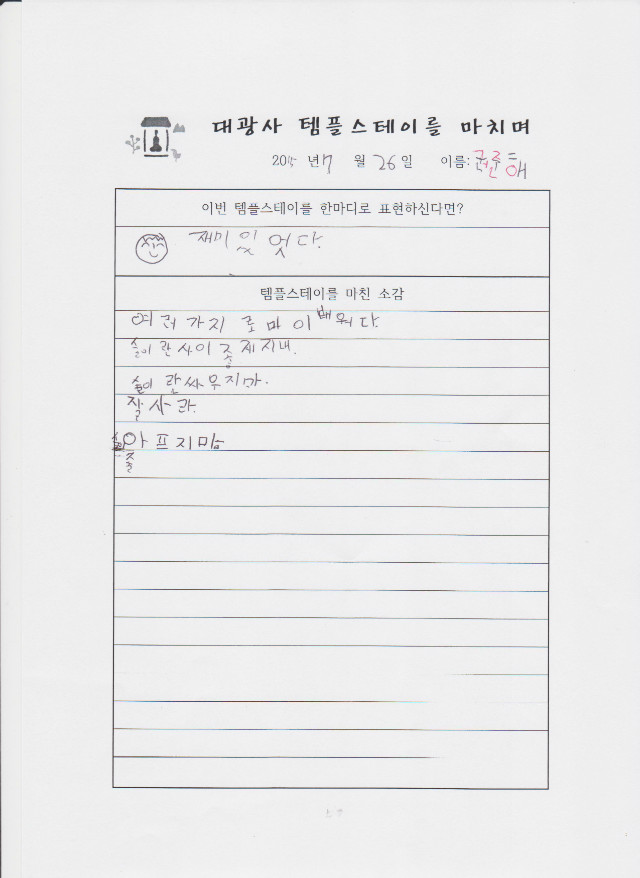 대광사 템플스테이를 마치며
년 7 월 26일 이름:
이번 템플스테이를 한마디로 표현하신다면?
재미 있 엇 다.
템플스테이를 마친 소감
여 러 가 지 로 마 이 배 워 다.
이 란 사이 좋 게 지내.
이 란 싸 우 지 마.
잘 사 라.
아 프 지 마